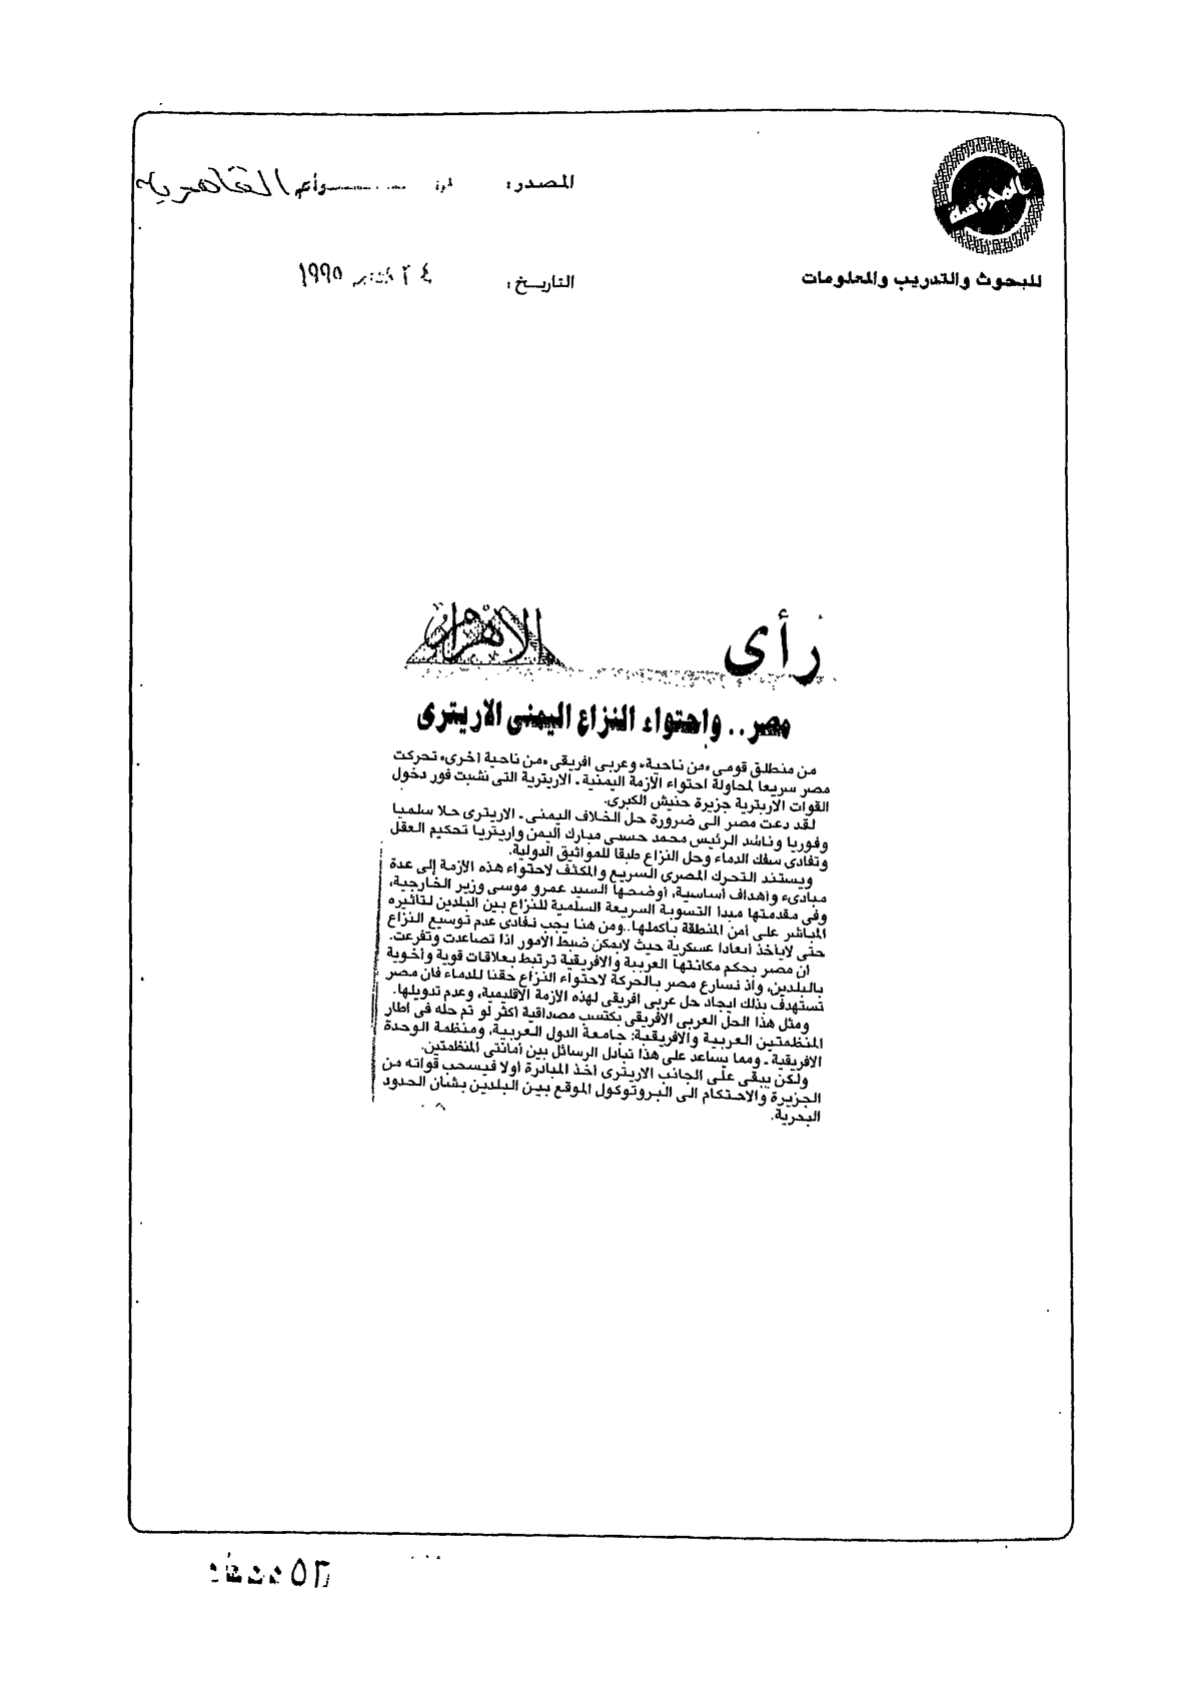 بالمحروسة
للبحوث والتدريب والمعلومات
المصدر:
القاهرية
التاريخ:
١٩٩٥
رأى
الاهرام
مصر.. واحتواء النزاع اليمنى الاريترى
من منطلق قومى «من ناحية» وعربى افريقى «من ناحية اخرى» تحركت
مصر سريعا لمحاولة احتواء الازمة اليمنية ـ الاريترية التى نشبت فور دخول
القوات الاريترية جزيرة حنيش الكبرى.
لقد دعت مصر الى ضرورة حل الخلاف اليمنى ـ الاريترى حلا سلميا
وفوريا وناشد الرئيس محمد حسنى مبارك اليمن واريتريا تحكيم العقل
وتفادى سفك الدماء وحل النزاع طبقا للمواثيق الدولية.
ويستند التحرك المصرى السريع والمكثف لاحتواء هذه الازمة إلى عدة
مبادىء وأهداف أساسية، أوضحها السيد عمرو موسى وزير الخارجية،
وفى مقدمتها مبدا التسوية السريعة السلمية للنزاع بين البلدين لتاثيره
المباشر على أمن المنطقة بأكملها..ومن هنا يجب تفادى عدم توسيع النزاع
حتى لايأخذ أبعادا عسكرية حيث لايمكن ضبط الامور اذا تصاعدت وتفرعت.
ان مصر بحكم مكانتها العربية والافريقية ترتبط بعلاقات قوية وأخوية
بالبلدين، واذ تسارع مصر بالحركة لاحتواء النزاع حقنا للدماء فان مصر
تستهدف بذلك ايجاد حل عربى افريقى لهذه الازمة الاقليمية، وعدم تدويلها.
ومثل هذا الحل العربى الافريقى يكتسب مصداقية أكثر لو تم حله فى اطار
المنظمتين العربية والافريقية: جامعة الدول العربية، ومنظمة الوحدة
الافريقية ـ ومما يساعد على هذا تبادل الرسائل بين أمانتى المنظمتين.
ولكن يبقى على الجانب الاريترى اخذ المبادرة اولا فيسحب قواته من
الجزيرة والاحتكام الى البروتوكول الموقع بين البلدين بشان الحدود
البحرية.